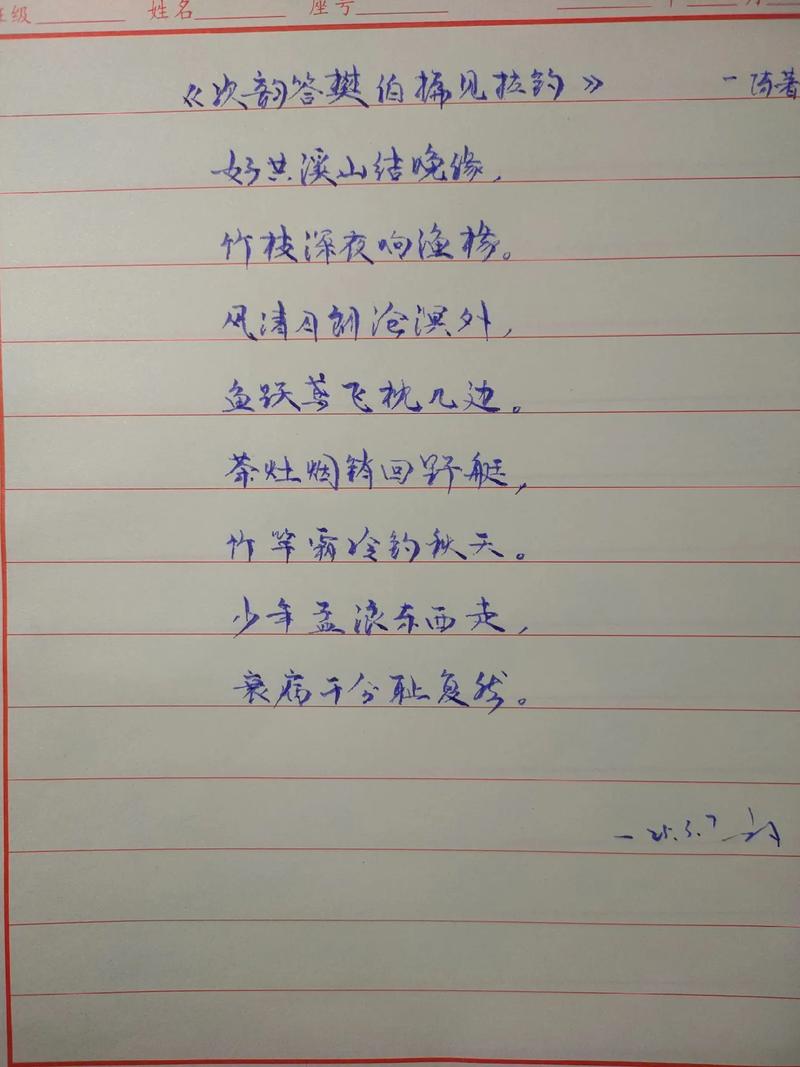 级 姓名 座号
《次韵答樊伯见拉钓》 一陈著
好共溪山结晚缘，
竹枝深夜响渔椽。
风清月朗沧溟外，
鱼跃鸢飞枕几边。
茶灶烟销回野艇，
竹竿霜冷钓秋天。
少年孟浪东西走，
衰病分耻复然。
一25.3.7